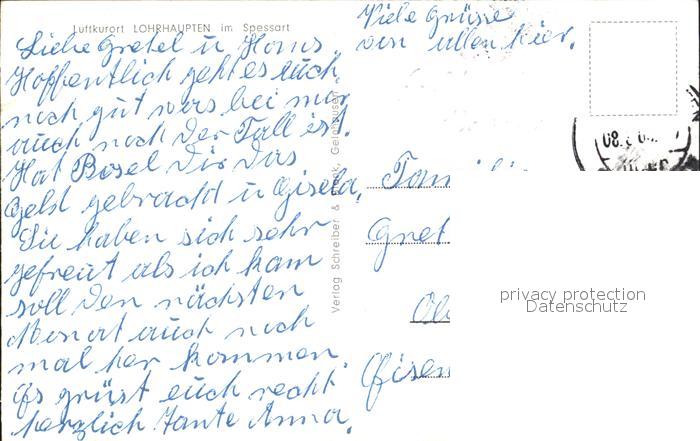 Luftkurort LOHRHAUPTEN im Spessart
Liebe Gretel u Hans.
Hoffentlich geht es euch
noch gut was bei mir
auch noch der Fall ist.
Hat Basel Dir das
Geld gebracht u Gisela,
Sie haben sich sehr
gefreut als ich kam
soll den nächsten
Monat auch noch
mal her kommen
Es grüst euch recht
herzlich Tante Anna.
Viele Grüsse
von allen hier.
Verlag Schreiber &
Gret
privacy protection
Datenschutz